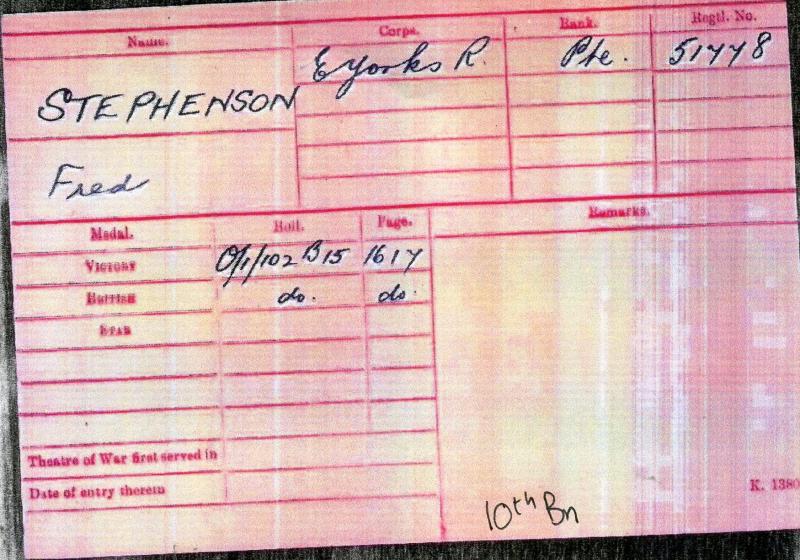 Name. Corps. Rank. Regtl. No.
STEPHENSON E Yorks R. Pte. 51778
Fred
Medal. Roll. Page. Remarks.
VICTORY O/1/102 B15 1617
BRITISH do. do.
STAR
Theatre of War first served in
Date of entry therein
K. 1380
10th Bn